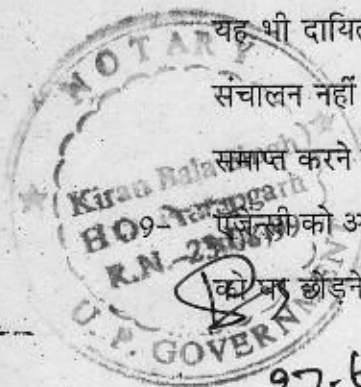 यह भी दायित
संचालन नहीं
समाप्त करने
9- एजेन्सी को अ
को घर छोड़ने
NOTARY
Kiran Bala Singh
H.O. Pratapgarh
R.N.-
U.P. GOVERNMEN